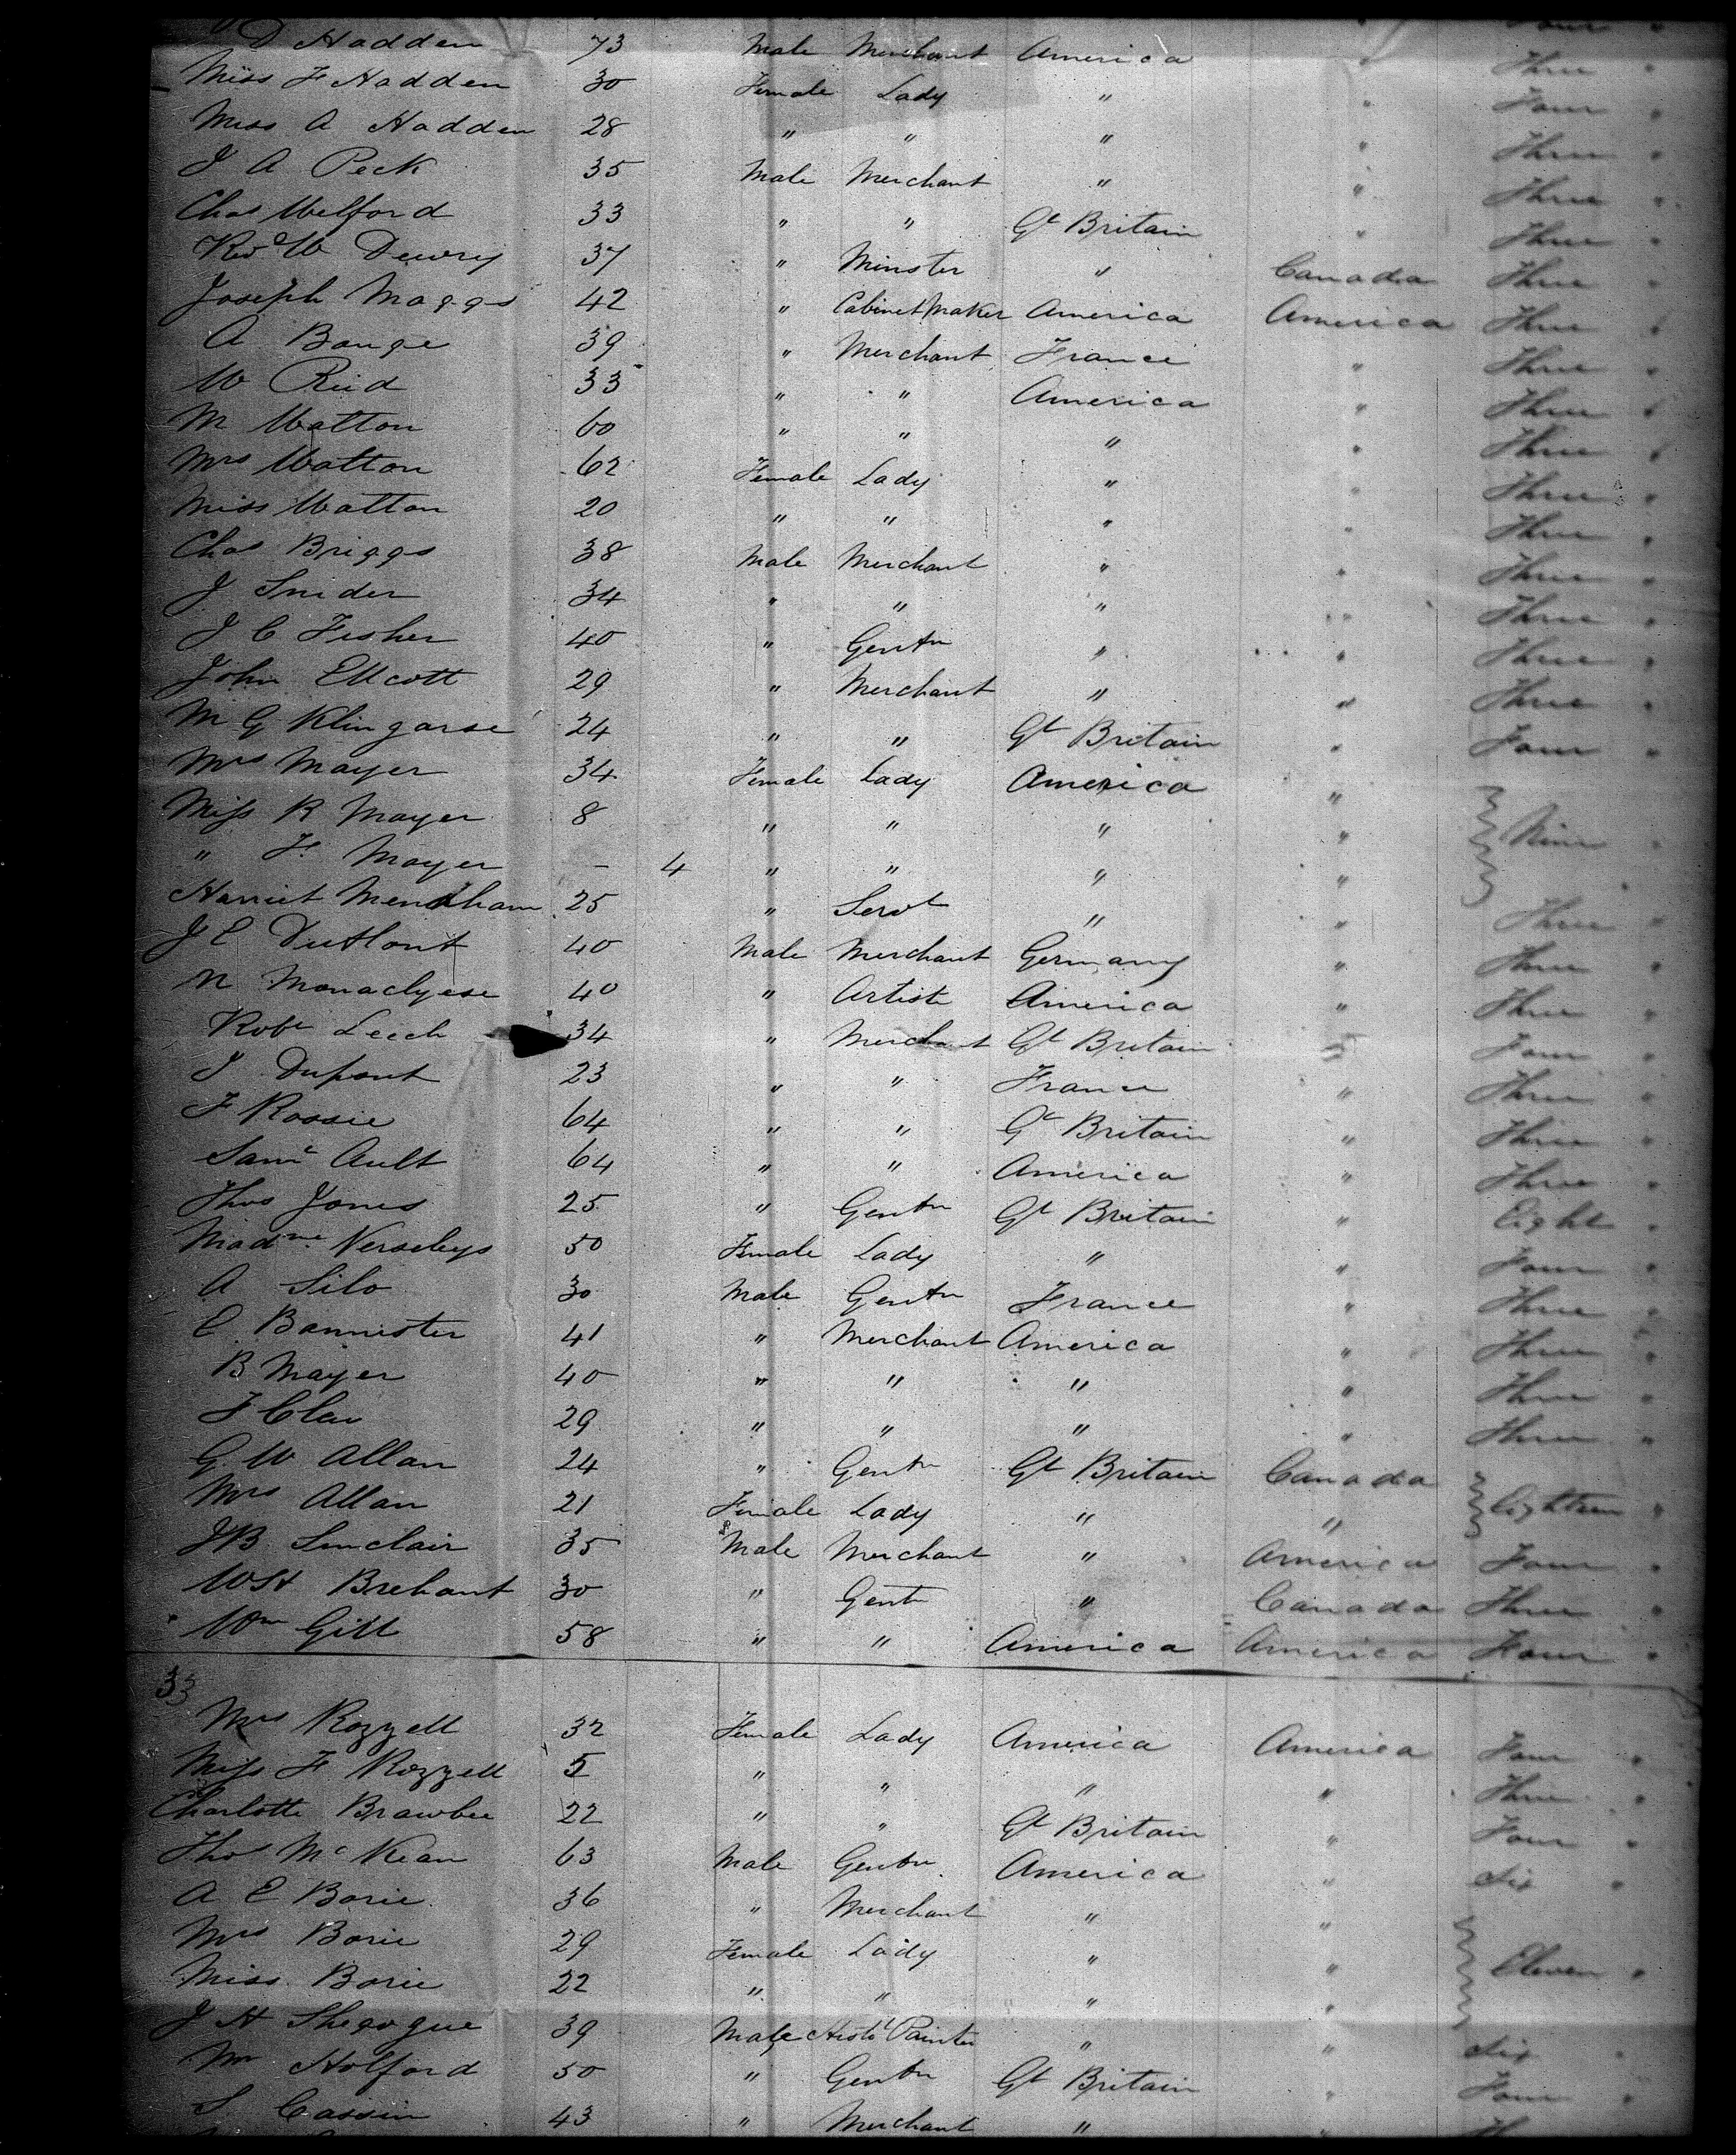 Four "
D Hadden 73 Male Merchant America " Three "
Miss F Hadden 30 Female Lady " " Four "
Miss A Hadden 28 " " " " Three "
J A Peck 35 Male Merchant " " Three "
Chas Welford 33 " " Gt Britain " Three "
Revd W Dewry 37 " Minster " Canada Three "
Joseph Maggs 42 " Cabinet Maker America America Three "
A Bange 39 " Merchant France " Three "
W Reid 33 " " America " Three "
M Watton 60 " " " " Three "
Mrs Watton 62 Female Lady " " Three "
Miss Watton 20 " " " " Three "
Chas Briggs 38 Male Merchant " " Three "
J Snider 34 " " " " Three "
J C Fisher 40 " Gentn " " Three "
John Ellcott 29 " Merchant " " Three "
M G Klingarse 24 " " Gt Britain " Four "
Mrs Mayer 34 Female Lady America "
Miss R Mayer 8 " " " " Nine "
" F Mayer - 4 " " " "
Harriet Mendham 25 " Servt " " Three "
J E 40 Male Merchant Germany " Three "
N 40 " Artist America " Three "
Robt Leech 34 " Merchant Gt Britain " Four "
J Dupont 23 " " France " Three "
F Rossie 64 " " Gt Britain " Three "
Saml Ault 64 " " America " Three "
Thos Jones 25 " Gentn Gt Britain " Eight "
Madme 50 Female Lady " " Four "
A Silo 30 Male Gentn France " Three "
E Bannister 41 " Merchant America " Three "
B Mayer 40 " " " " Three "
F 29 " " " " Three "
G W Allan 24 " Gentn Gt Britain Canada
Mrs Allan 21 Female Lady " " Eighteen "
J B Sinclair 35 Male Merchant " America Four "
W St Brehant 30 " Gentn " Canada Three "
Wm Gill 58 " " America America Four "
33
Mrs Rozzell 32 Female Lady America America Four "
Miss F Rozzell 5 " " " " Three "
Charlotte Brawbee 22 " " Gt Britain " Four "
Thos McKean 63 Male Gentn America " Six "
A E Borie 36 " Merchant " "
Mrs Borie 29 Female Lady " " Eleven "
Miss Borie 22 " " " "
J H Shegogue 39 Male Histl Painter " " Six "
Mr Holford 50 " Gentn Gt Britain " Four "
S Cassin 43 " Merchant " "